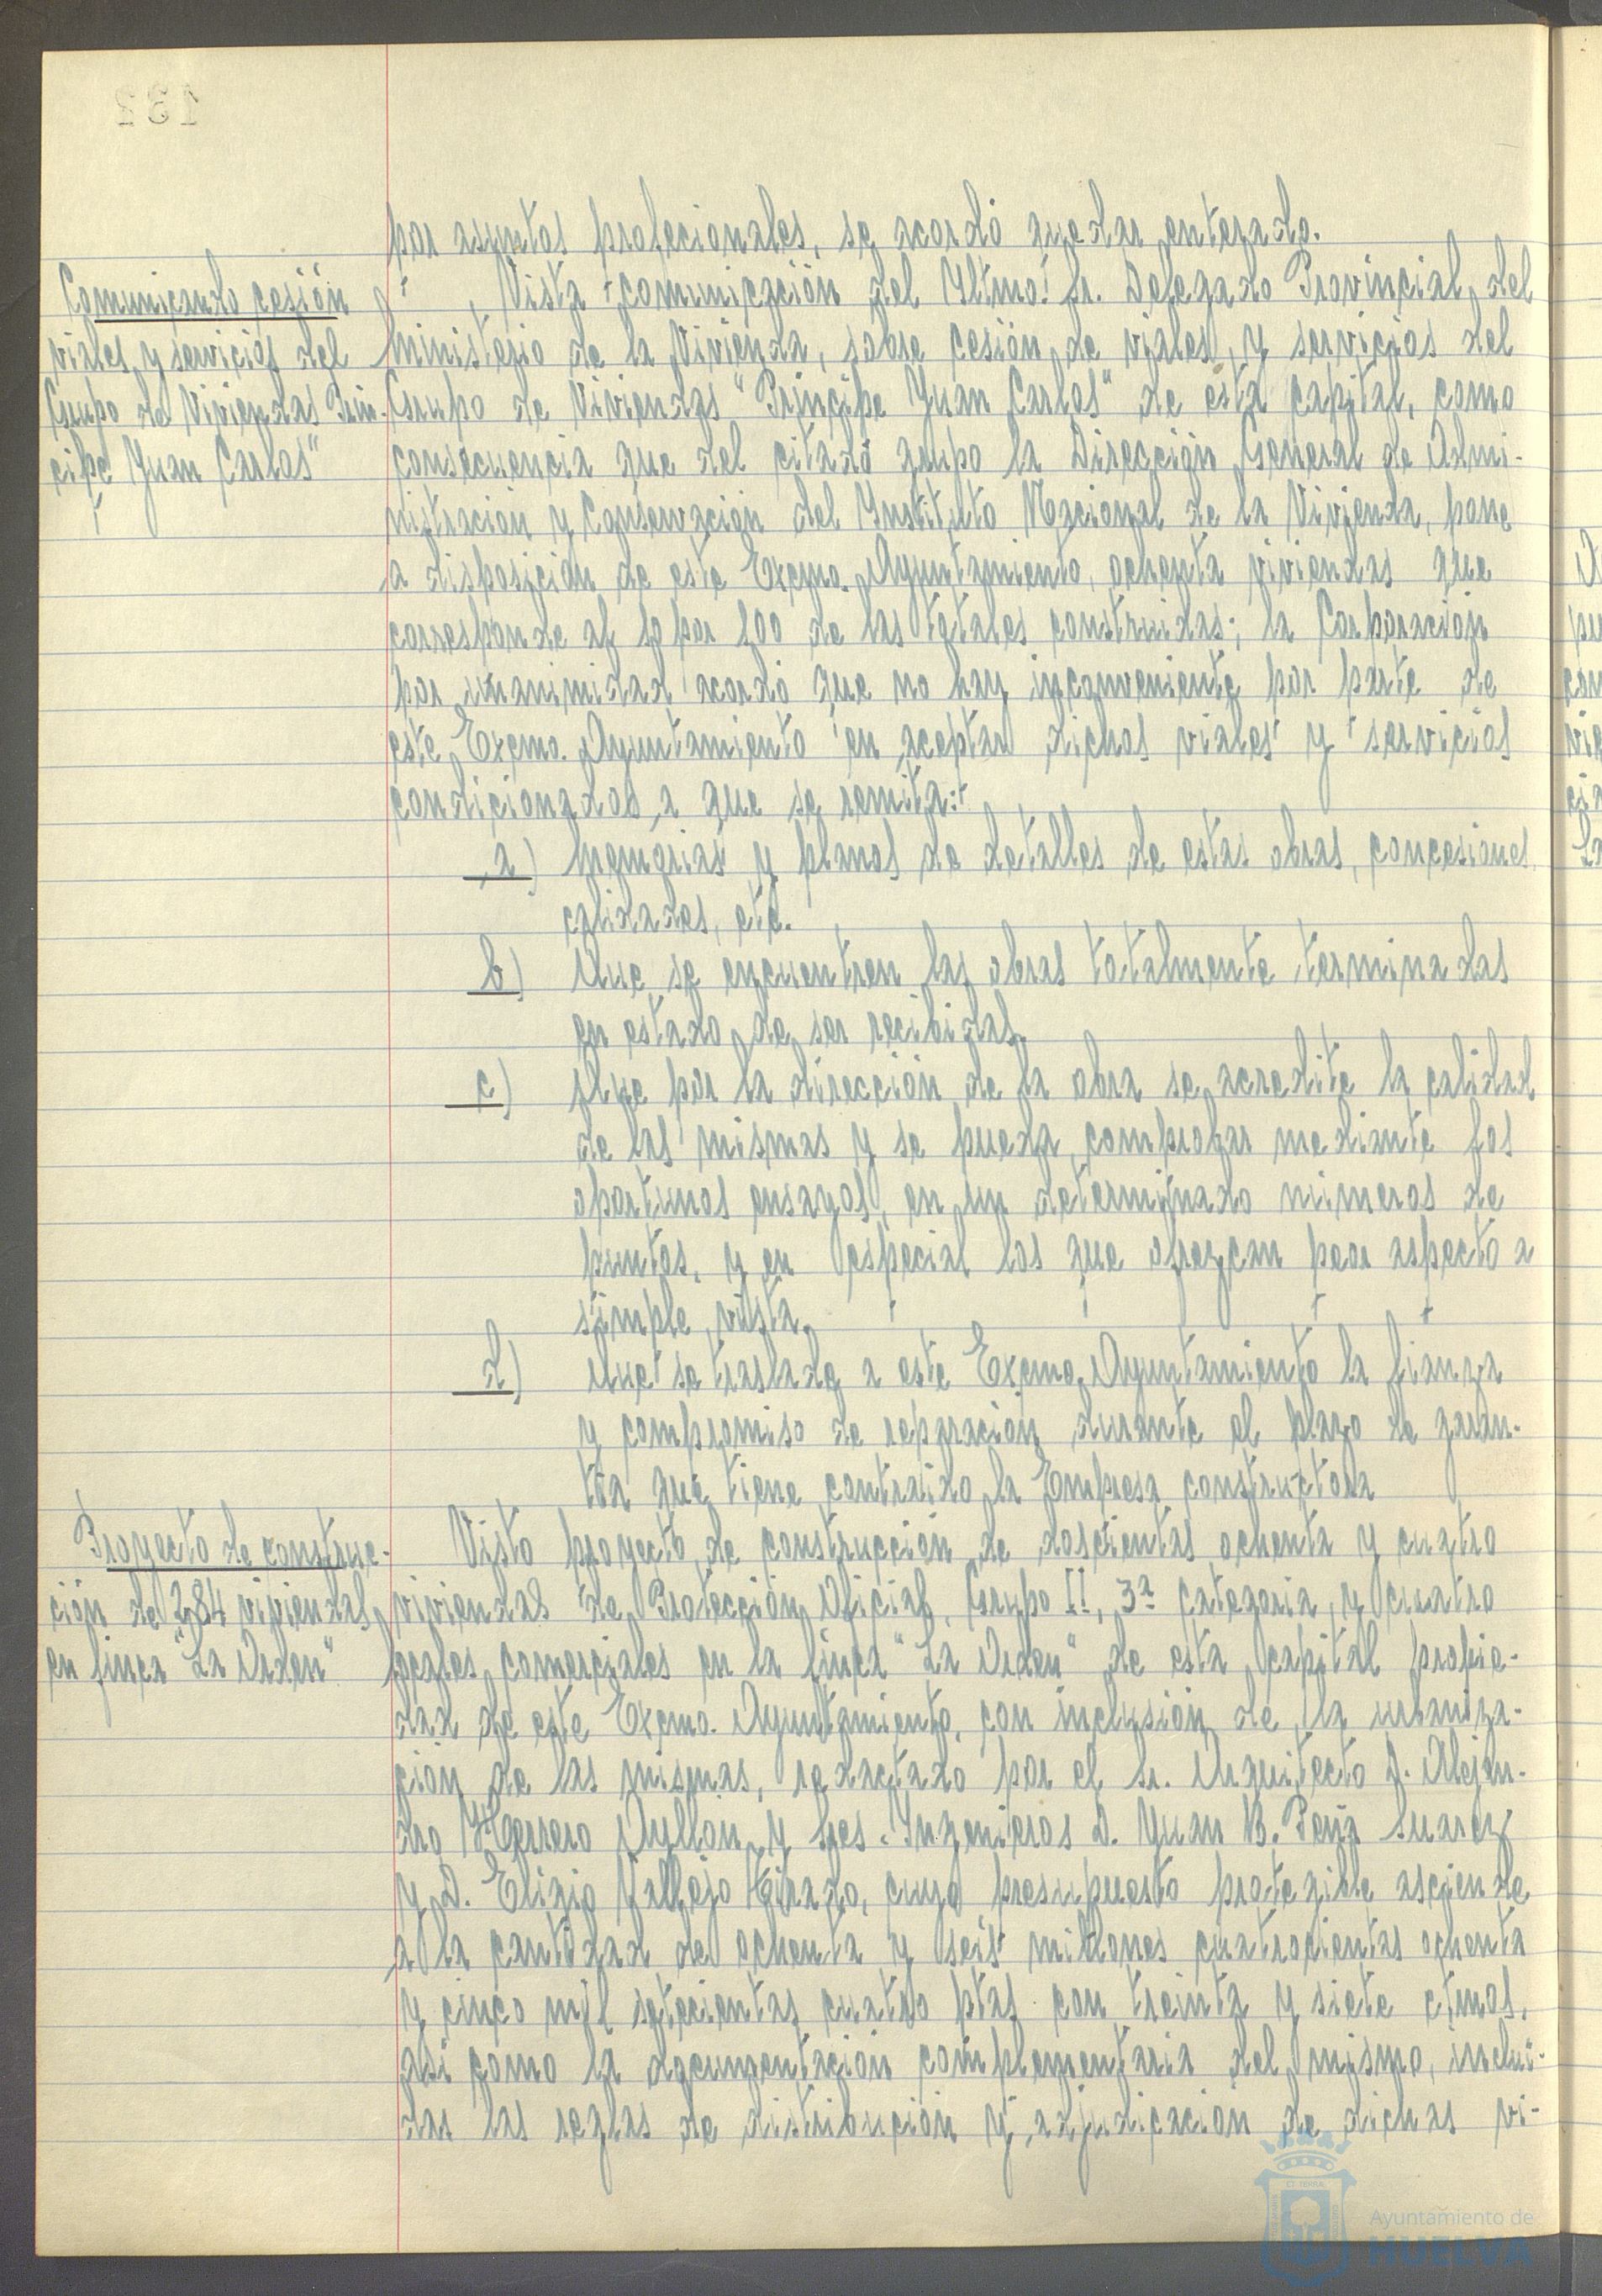 132
por asuntos profecionales, se acordó quedar enterado.
Comunicando cesión
viales y servicios del
Grupo de Viviendas Prin-
cipe Yuan Carlos"
Vista comunicación del Yltmo. Sr. Delegado Provincial del
Ministerio de la Vivienda, sobre cesión de viales, y servicios del
Grupo de Viviendas "Príncipe Yuan Carlos" de esta capital, como
consecuencia que del citado grupo la Dirección General de Admi-
nistración y Conservación del Ynstituto Nacional de la Vivienda, pone
a disposición de este Excmo. Ayuntamiento, ochenta viviendas que
corresponde al 10 por 100 de las totales construidas; la Corporación
por unanimidad acordó que no hay inconveniente por parte de
este Excmo. Ayuntamiento en aceptar dichos viales y servicios
condicionados a que se remita:
a) Memorias y planos de detalles de estas obras, concesiones,
calidades, etc.
b) Que se encuentren las obras totalmente terminadas
en estado de ser recibidas.
c) Que por la dirección de la obra se acredite la calidad
de las mismas y se pueda comprobar mediante los
oportunos ensayos, en un determinado números de
puntos, y en especial los que ofrezcan peor aspecto a
simple vista.
d) Que se traslade a este Excmo. Ayuntamiento la fianza
y compromiso de reparación durante el plazo de garan-
tía que tiene contraido la Empresa constructora
Proyecto de construc-
ción de 284 viviendas
en finca "La Orden"
Visto proyecto de construcción de doscientas ochenta y cuatro
viviendas de Protección Oficial, Grupo II, 3ª categoria, y cuatro
locales comerciales en la finca "La Orden" de esta capital propie-
dad de este Excmo. Ayuntamiento, con inclusión de la urbaniza-
ción de las mismas, redactado por el Sr. Arquitecto D. Alejan-
dro Herrero Ayllón y Sres. Yngenieros D. Yuan B. Peña Suarez
y D. Eligio Vallejo Tirado, cuyo presupuesto protegible asciende
a la cantidad de ochenta y seis millones cuatrocientas ochenta
y cinco mil setecientas cuatro ptas. con treinta y siete ctmos.
así como la documentación complementaria del mismo, inclui-
das las reglas de distribución y adjudicación de dichas vi-
Ayuntamiento de
HUELVA